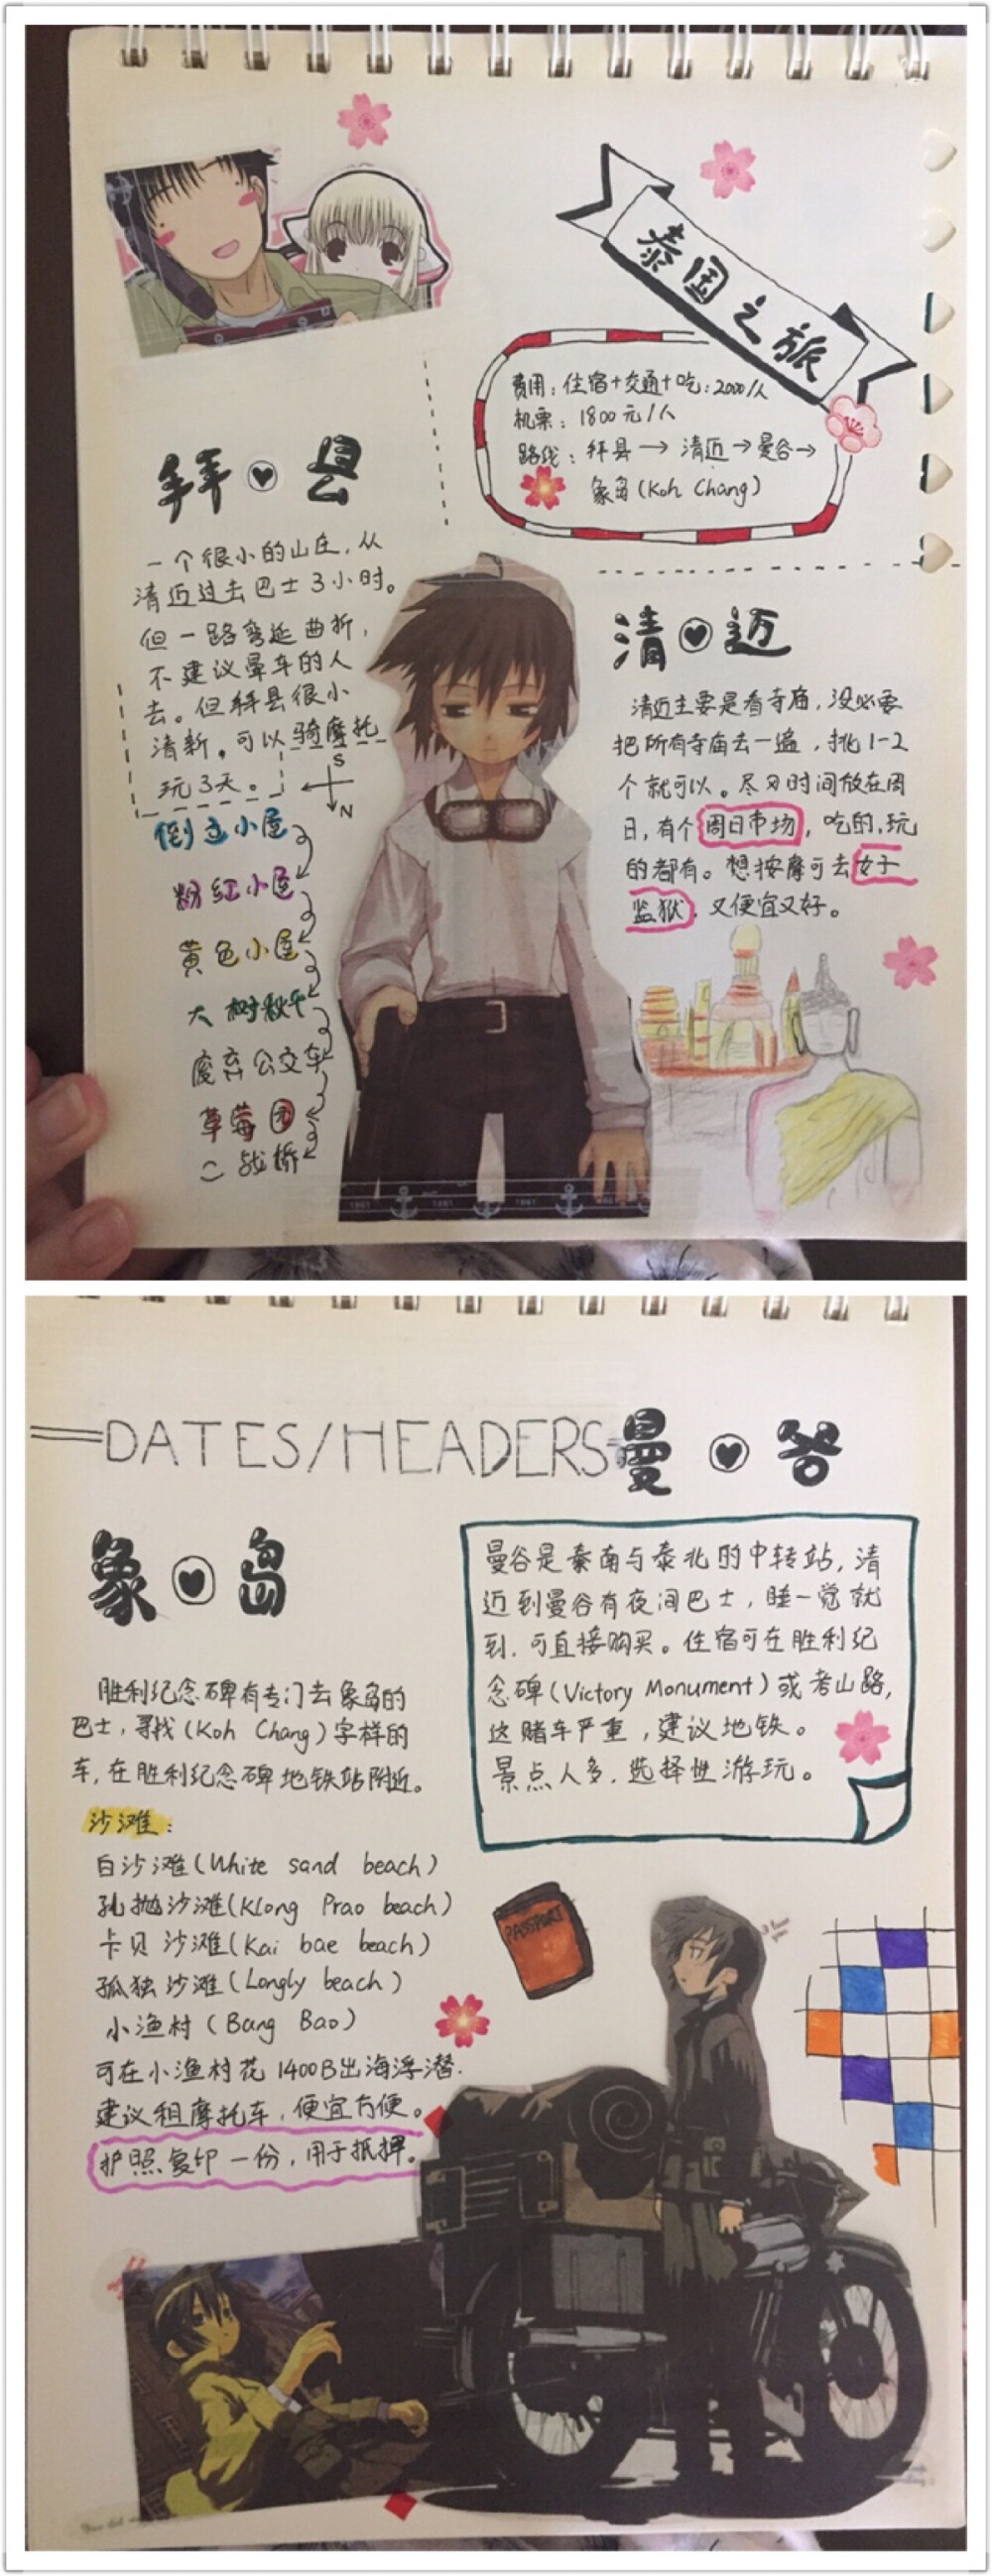 泰国之旅
费用：住宿+交通+吃：2000/人
机票：1800元/人
路线：拜县→清迈→曼谷→
象岛(Koh Chang)
拜县
一个很小的山庄，从
清迈过去巴士3小时。
但一路弯延曲折，
不建议晕车的人
去。但拜县很小
清新。可以骑摩托
玩3天。
S
N
倒立小屋
粉红小屋
黄色小屋
大树秋千
废弃公交车
草莓园
二战桥
清迈
清迈主要是看寺庙，没必要
把所有寺庙去一遍，挑1-2
个就可以。尽力时间放在周
日，有个周日市场，吃的，玩
的都有。想按摩可去女子
监狱，又便宜又好。
1861 1861 1861
DATES/HEADERS
曼谷
曼谷是泰南与泰北的中转站，清
迈到曼谷有夜间巴士，睡一觉就
到，可直接购买。住宿可在胜利纪
念碑(Victory Monument)或考山路，
这赌车严重，建议地铁。
景点人多，选择性游玩。
象岛
胜利纪念碑有专门去象岛的
巴士，寻找(Koh Chang)字样的
车，在胜利纪念碑地铁站附近。
沙滩：
白沙滩(White sand beach)
孔抛沙滩(Klong Prao beach)
卡贝沙滩(Kai bae beach)
孤独沙滩(Longly beach)
小渔村(Bang Bao)
可在小渔村花1400B出海浮潜.
建议租摩托车，便宜方便。
护照复印一份，用于抵押。
PASSPORT